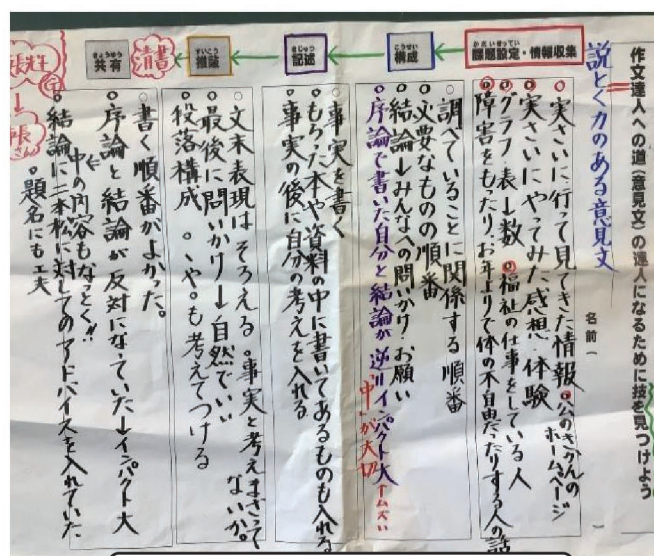 作文達人への道(意見文)の達人になるために技を見つけよう
名前(　　　)
説とく力のある意見文
課題設定・情報収集
かだいせってい
◎実さいに行って見てきた情報 ◎公のきかんのホームページ
◎実さいにやってみた感想・体験
◎グラフ・表→数 ◎福祉の仕事をしている人
◎障害をもたり、お年よりで体の不自由だったりする人の話
構成
こうせい
○調べていることに関係する順番
○必要なものの順番
○結論→みんなへの問いかけ・お願い
○序論で書いた自分と結論が逆!!インパクト大
中が大切
記述
きじゅつ
○事実を書く
○もらった本や資料の中に書いてあるものも入れる
○事実の後に自分の考えを入れる
推敲
すいこう
○文末表現はそろえる。
○事実と考えまざってないか。
○最後に問いかけ→自然でいい
○段落構成
○、や。も考えてつける
清書
共有
きょうゆう
○書く順番がよかった。
○序論と結論が反対になっていた→インパクト大
中の内容もなっとく!!
○結論に二本松に対してのアドバイスを入れていた
○題名にも工夫